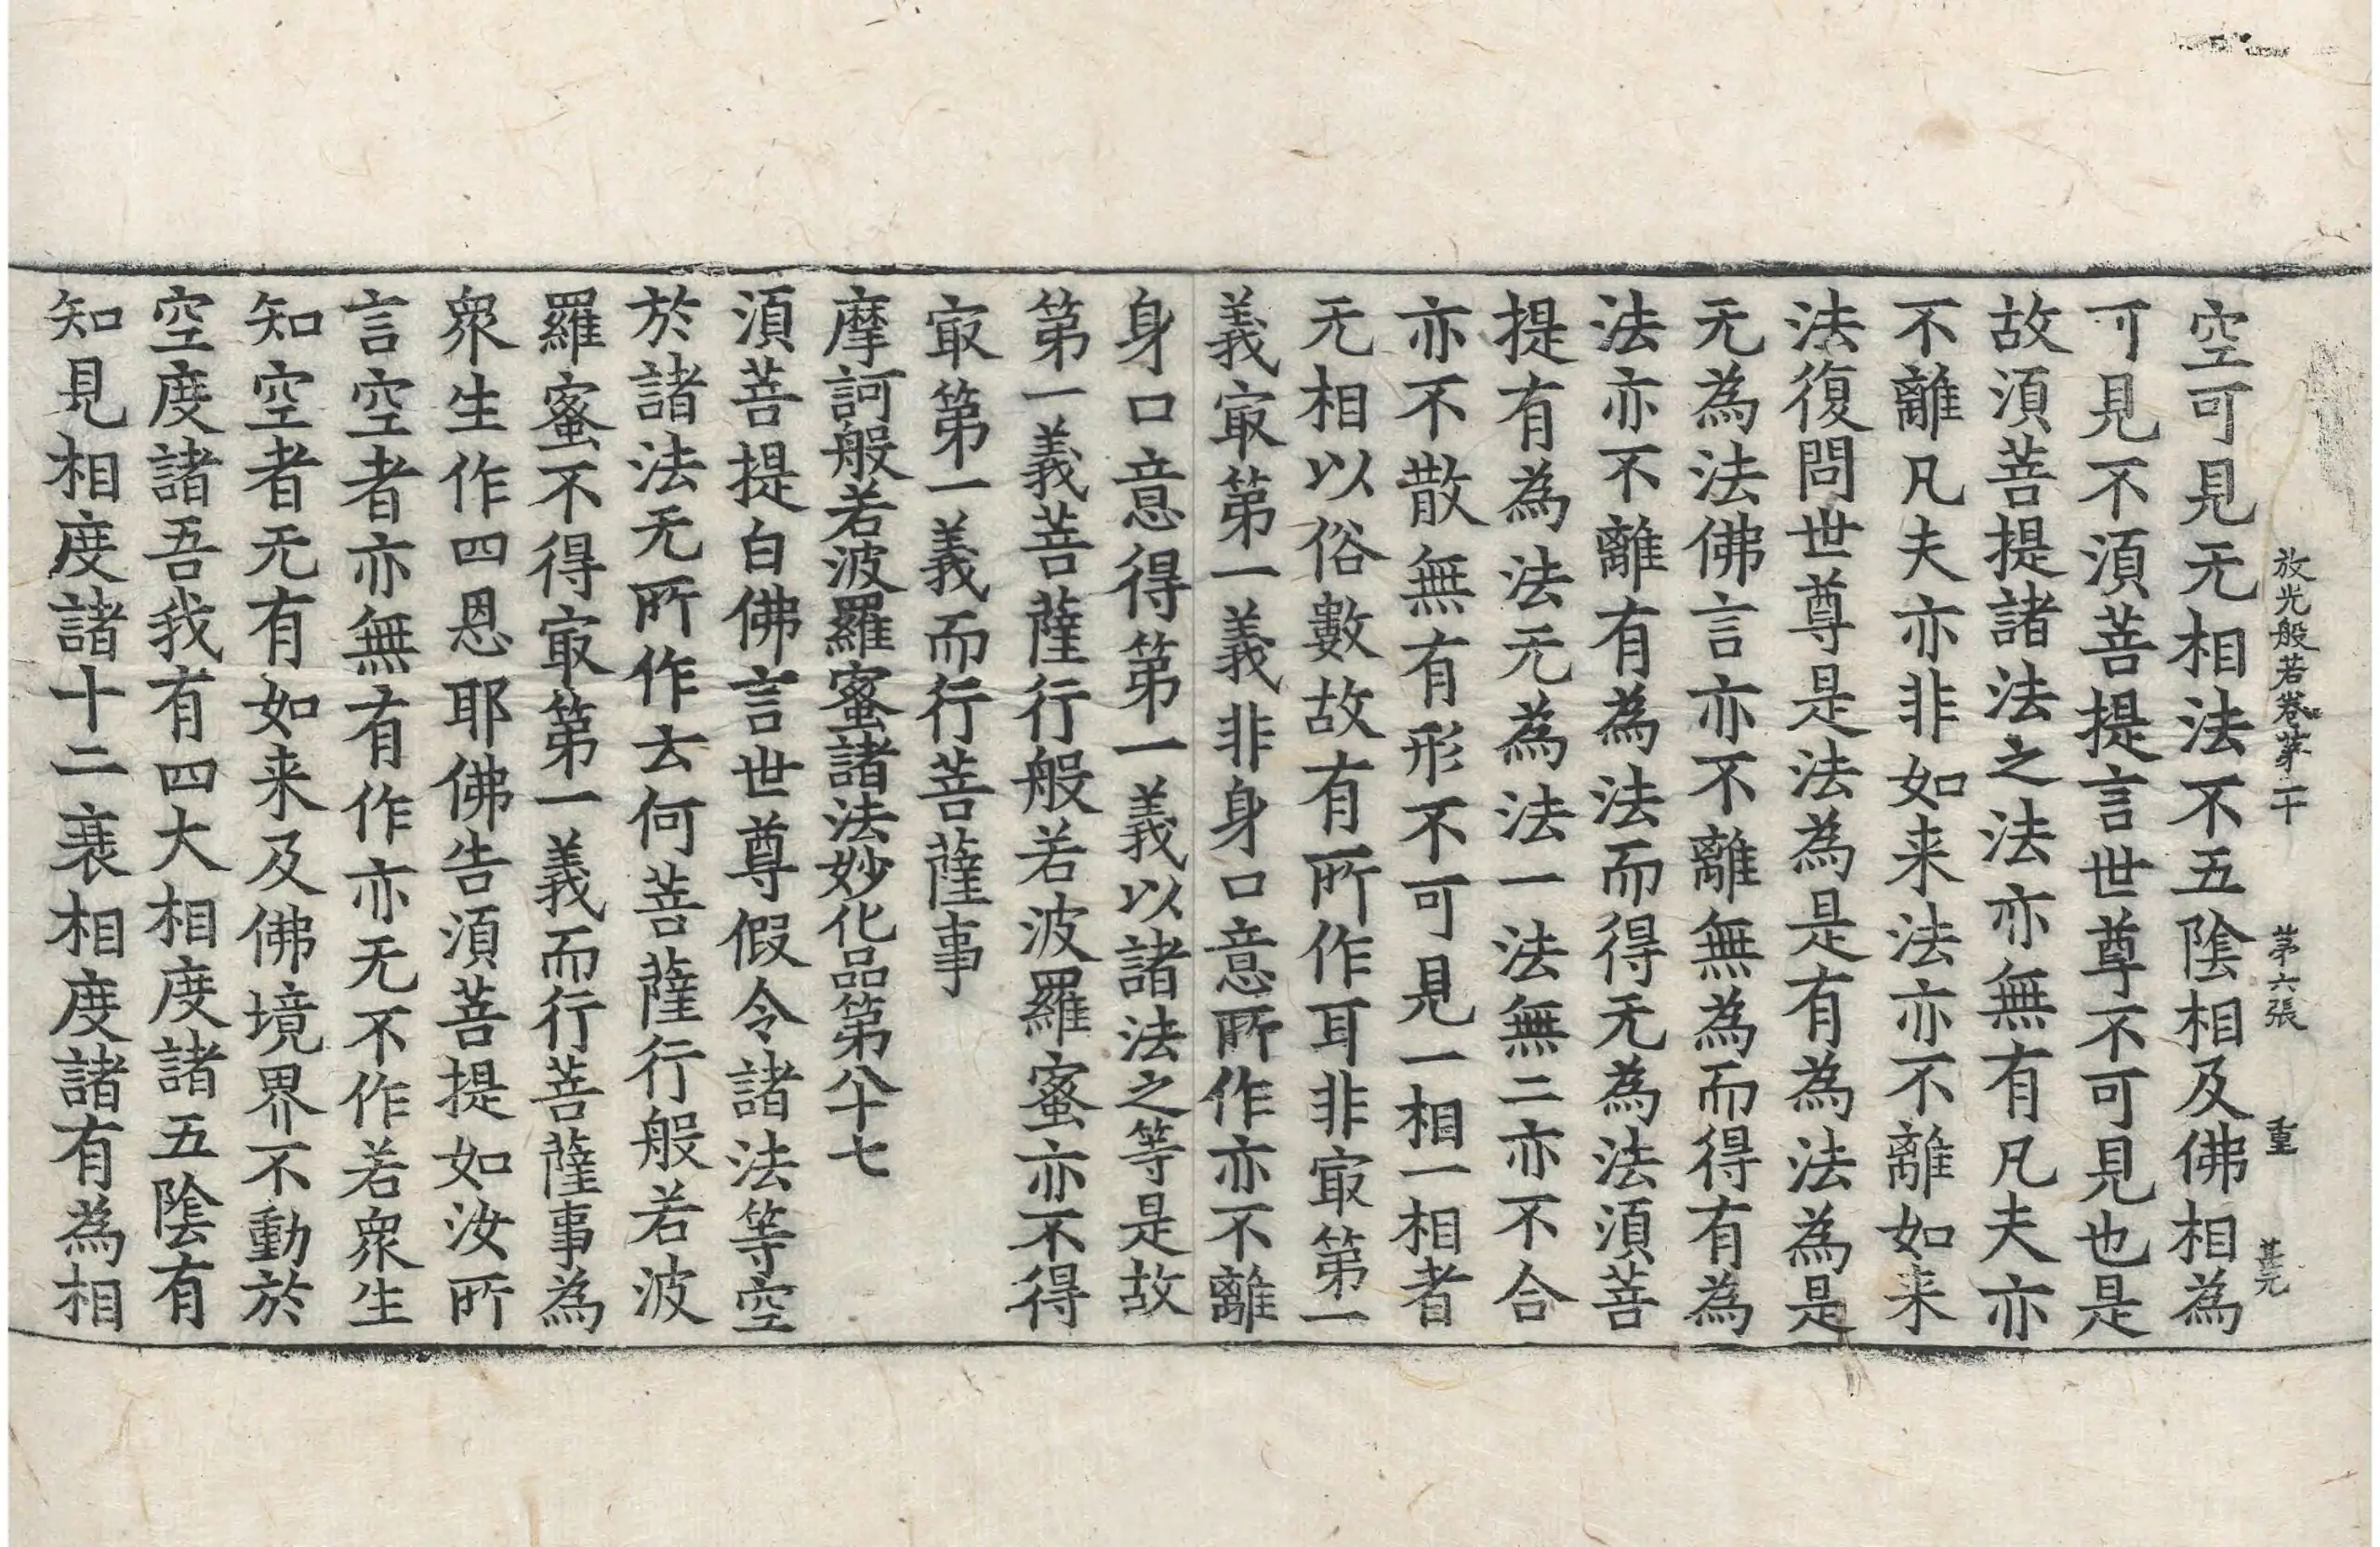 放光般若卷第二十 第六張 重 甚元
空可見无相法不五陰相及佛相為
可見不須菩提言世尊不可見也是
故須菩提諸法之法亦無有凡夫亦
不離凡夫亦非如来法亦不離如来
法復問世尊是法為是有為法為是
无為法佛言亦不離無為而得有為
法亦不離有為法而得无為法須菩
提有為法无為法一法無二亦不合
亦不散無有形不可見一相一相者
无相以俗數故有所作耳非㝡第一
義㝡第一義非身口意所作亦不離
身口意得第一義以諸法之等是故
第一義菩薩行般若波羅蜜亦不得
㝡第一義而行菩薩事
摩訶般若波羅蜜諸法妙化品第八十七
須菩提白佛言世尊假令諸法等空
於諸法无所作去何菩薩行般若波
羅蜜不得㝡第一義而行菩薩事為
衆生作四恩耶佛告須菩提如汝所
言空者亦無有作亦无不作若衆生
知空者无有如来及佛境界不動於
空度諸吾我有四大相度諸五陰有
知見相度諸十二衰相度諸有為相